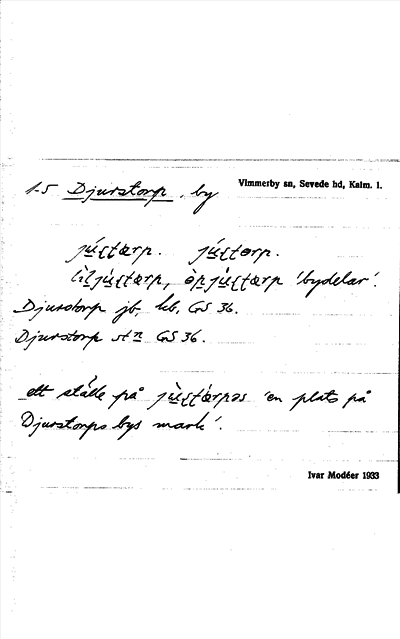 1-5 Djurstorp, by
Vimmerby sn, Sevede hd, Kalm. l.
'bydelar'.
Djurstorp jb, hb, GS 36.
Djurstorp stn GS 36.
ett ställe på 'en plats på
Djurstorps bys mark'.
Ivar Modéer 1933